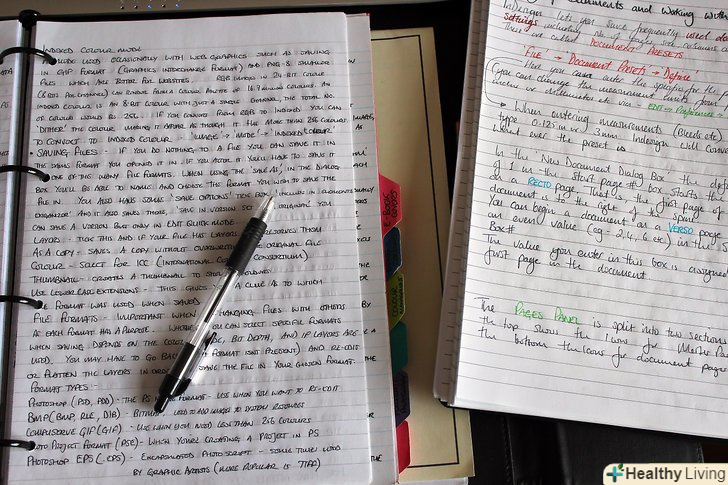 INDEXED COLOUR MODE
MODE USED OCCASIONALLY WITH WEB GRAPHICS SUCH AS SAVING
IN GIF FORMAT (GRAPHICS INTERCHANGE FORMAT) AND PNG-8 SMALLER
FILES WHICH ARE BETTER FOR WEBSITES. RGB IMAGES IN 24-BIT COLOUR
(8 BITS PER CHANNEL) CAN CHOOSE FROM A COLOUR PALETTE OF 16.7 MILLION COLOURS. AN
INDEXED COLOUR IS AN 8-BIT COLOUR WITH JUST A SINGLE CHANNEL, THE TOTAL NO.
OF COLOUR WOULD BE 256. IF YOU CONVERT FROM RGB TO INDEXED YOU CAN
'DITHER' THE COLOUR, MAKING IT APPEAR AS THOUGH IT HAS MORE THAN 256 COLOURS.
TO CONVERT TO INDEXED COLOUR 'IMAGE' → 'MODE' → 'INDEXED COLOUR'
SAVING FILES - IF YOU DO NOTHING TO A FILE YOU CAN SAVE IT IN
THE SAME FORMAT YOU OPENED IT IN. IF YOU ALTER IT YOU'LL HAVE TO SAVE IT
ONE OF THE MANY FILE FORMATS. WHEN USING THE 'SAVE AS' IN THE DIALOG
BOX YOU'LL BE ABLE TO NAME AND CHOOSE THE FORMAT YOU WISH TO SAVE THE
FILE IN. YOU ALSO HAVE SOME 'SAVE OPTIONS' TICK BOX 'INCLUDE IN ELEMENTS
ORGANIZER' AND IT ALSO SAVES THERE, 'SAVE IN VERSION SET ORIGINAL' YOU
CAN SAVE A VERSION BUT ONLY IN EDIT QUICK MODE
LAYERS - TICK THIS AND IF YOUR FILE HAS LAYERS PRESERVES THEM
AS A COPY - SAVES A COPY WITHOUT OVERWRITING THE ORIGINAL FILE
COLOUR - SELECT FOR ICC (INTERNATIONAL CONSORTIUM)
THUMBNAIL - CREATES A THUMBNAIL TO
USE LOWER CASE EXTENSIONS - THIS GIVES A CLUE AS TO WHICH
FORMAT WAS USED WHEN SAVED
FILE FORMATS - IMPORTANT WHEN FILES WITH OTHERS
AS EACH FORMAT HAS A PURPOSE. YOU CAN SELECT SPECIFIC FORMATS
WHEN SAVING DEPENDS ON THE COLOUR BIT DEPTH, AND IF LAYERS ARE
USED. YOU MAY HAVE TO GO BACK (IF A FORMAT ISN'T PRESENT) AND RE-EDIT
OR FLATTEN THE LAYERS IN ORDER TO SAVE THE FILE IN YOUR CHOSEN FORMAT.
FORMAT TYPES :-
PHOTOSHOP (PSD, PDD) - THE PS FORMAT - USE WHEN YOU WANT TO RE-EDIT
BMP (BMP, RLE, DIB) - BITMAP, USED TO ADD IMAGES TO SYSTEM RESOURCES
COMPUSERVE GIF (GIF) - USE WHEN YOU NEED LESS THAN 256 COLOURS
PHOTO PROJECT FORMAT (PSE) - WHEN YOUR CREATING A PROJECT IN PS
PHOTOSHOP EPS (.EPS) - ENCAPSULATED POSTSCRIPT - SOME TIMES USED
BY GRAPHIC ARTISTS (MORE POPULAR IS TIFF)
E-BOOK
COLOUR
documents and working with
InDesign lets you save frequently used doc
settings including no. of pages, size, columns
These are called DOCUMENT PRESETS
'FILE' → 'Document Presets' → Define
Here you can enter the specifics for the
(you can change the measurement units from
inches or millimetres etc via - EDIT → Preferences →
→ When entering measurements (Bleeds etc.)
type 0.125 in or 3 mm. Indesign will conve
went ever the preset is
In the New Document Dialog Box the de
of 1 in the start page # box starts the
on a RECTO page. That is the first page of
document is to the right of the spine.
You can begin a document as a VERSO page
an even value (eg 2, 4, 6 etc) in the S
Box#
The value you enter in this box is assigne
first page in the document
The PAGES PANEL is split into two sections
the top shows the Icons for Master
the bottom the Icons for document pages
Healthy Living